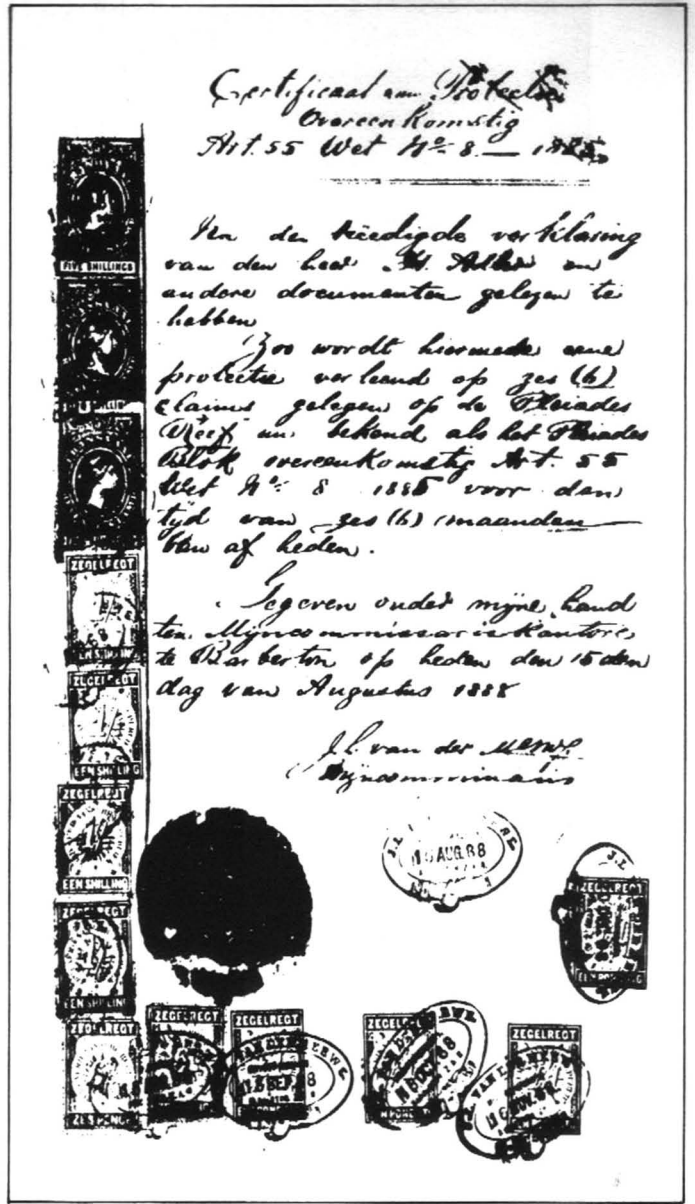 Certificaat van Protectie
Overeenkomstig
Art. 55 Wet No. 8 — 1885
Na de beëedigde verklaring
van den heer Adler en
andere documenten gelezen te
hebben
Zoo wordt hiermede eene
protectie verleend op zes (6)
claims gelegen op de Pleiades
Reef en bekend als het Pleiades
Blok overeenkomstig Art. 55
Wet No. 8 1885 voor den
tijd van zes (6) maanden
van af heden.
Gegeven onder mijne hand
ten Mijncommissariskantore
te Barberton op heden den 15den
dag van Augustus 1888
J. L. van der Merwe
Mijncommissaris
FIVE SHILLINGS
ZEGELREGT
EEN SHILLING
ZEGELREGT
EEN SHILLING
ZEGELREGT
EEN SHILLING
ZEGELREGT
EEN SHILLING
ZEGELREGT
ZES PENCE
ZEGELREGT
ZEGELREGT
ZEGELREGT
ZEGELREGT
ZEGELREGT
AUG. 88